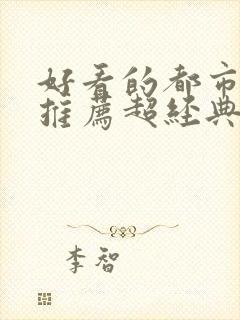 好看的都市
推薦超經典
李智